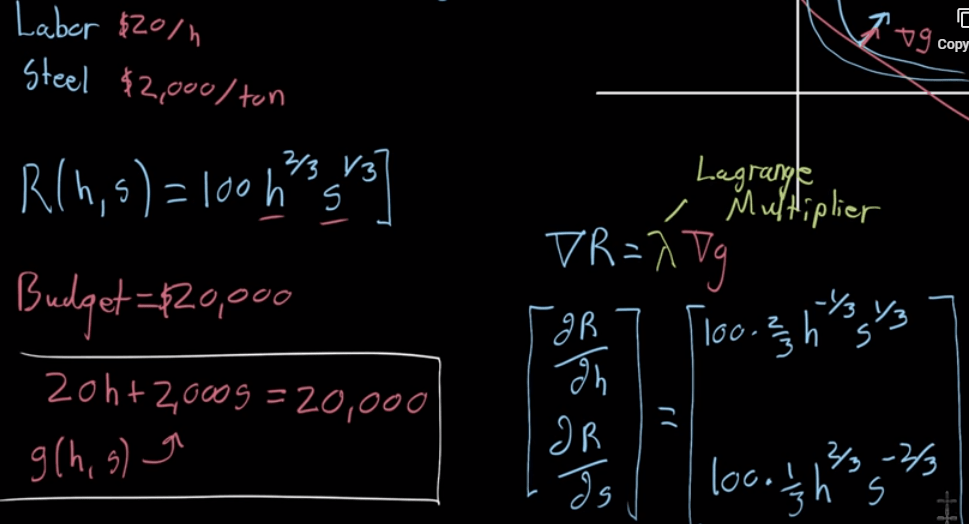 Labor $20/h
Steel $2,000/ton
R(h,s) = 100 h^{2/3} s^{1/3}]
Budget = $20,000
20h + 2,000s = 20,000
g(h,s)
∇g
Copy
Lagrange
Multiplier
∇R = λ ∇g
[∂R/∂h
∂R/∂s] = [100 · 2/3 h^{-1/3} s^{1/3}
100 · 1/3 h^{2/3} s^{-2/3}]